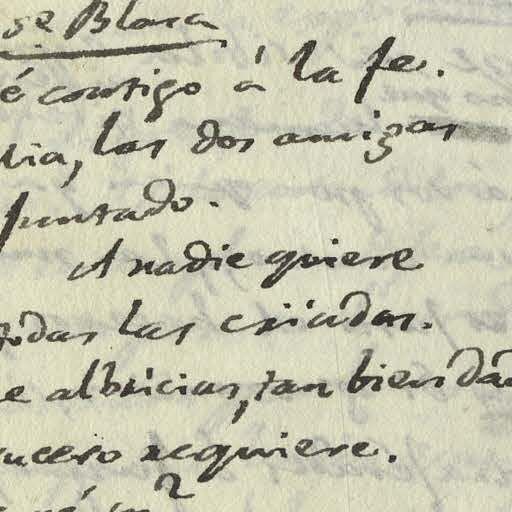 Blanca
é contigo á la fe.
las dos amigas
juntado.
A nadie quiere
todas las criadas.
e albricias, tan bien
requiere.